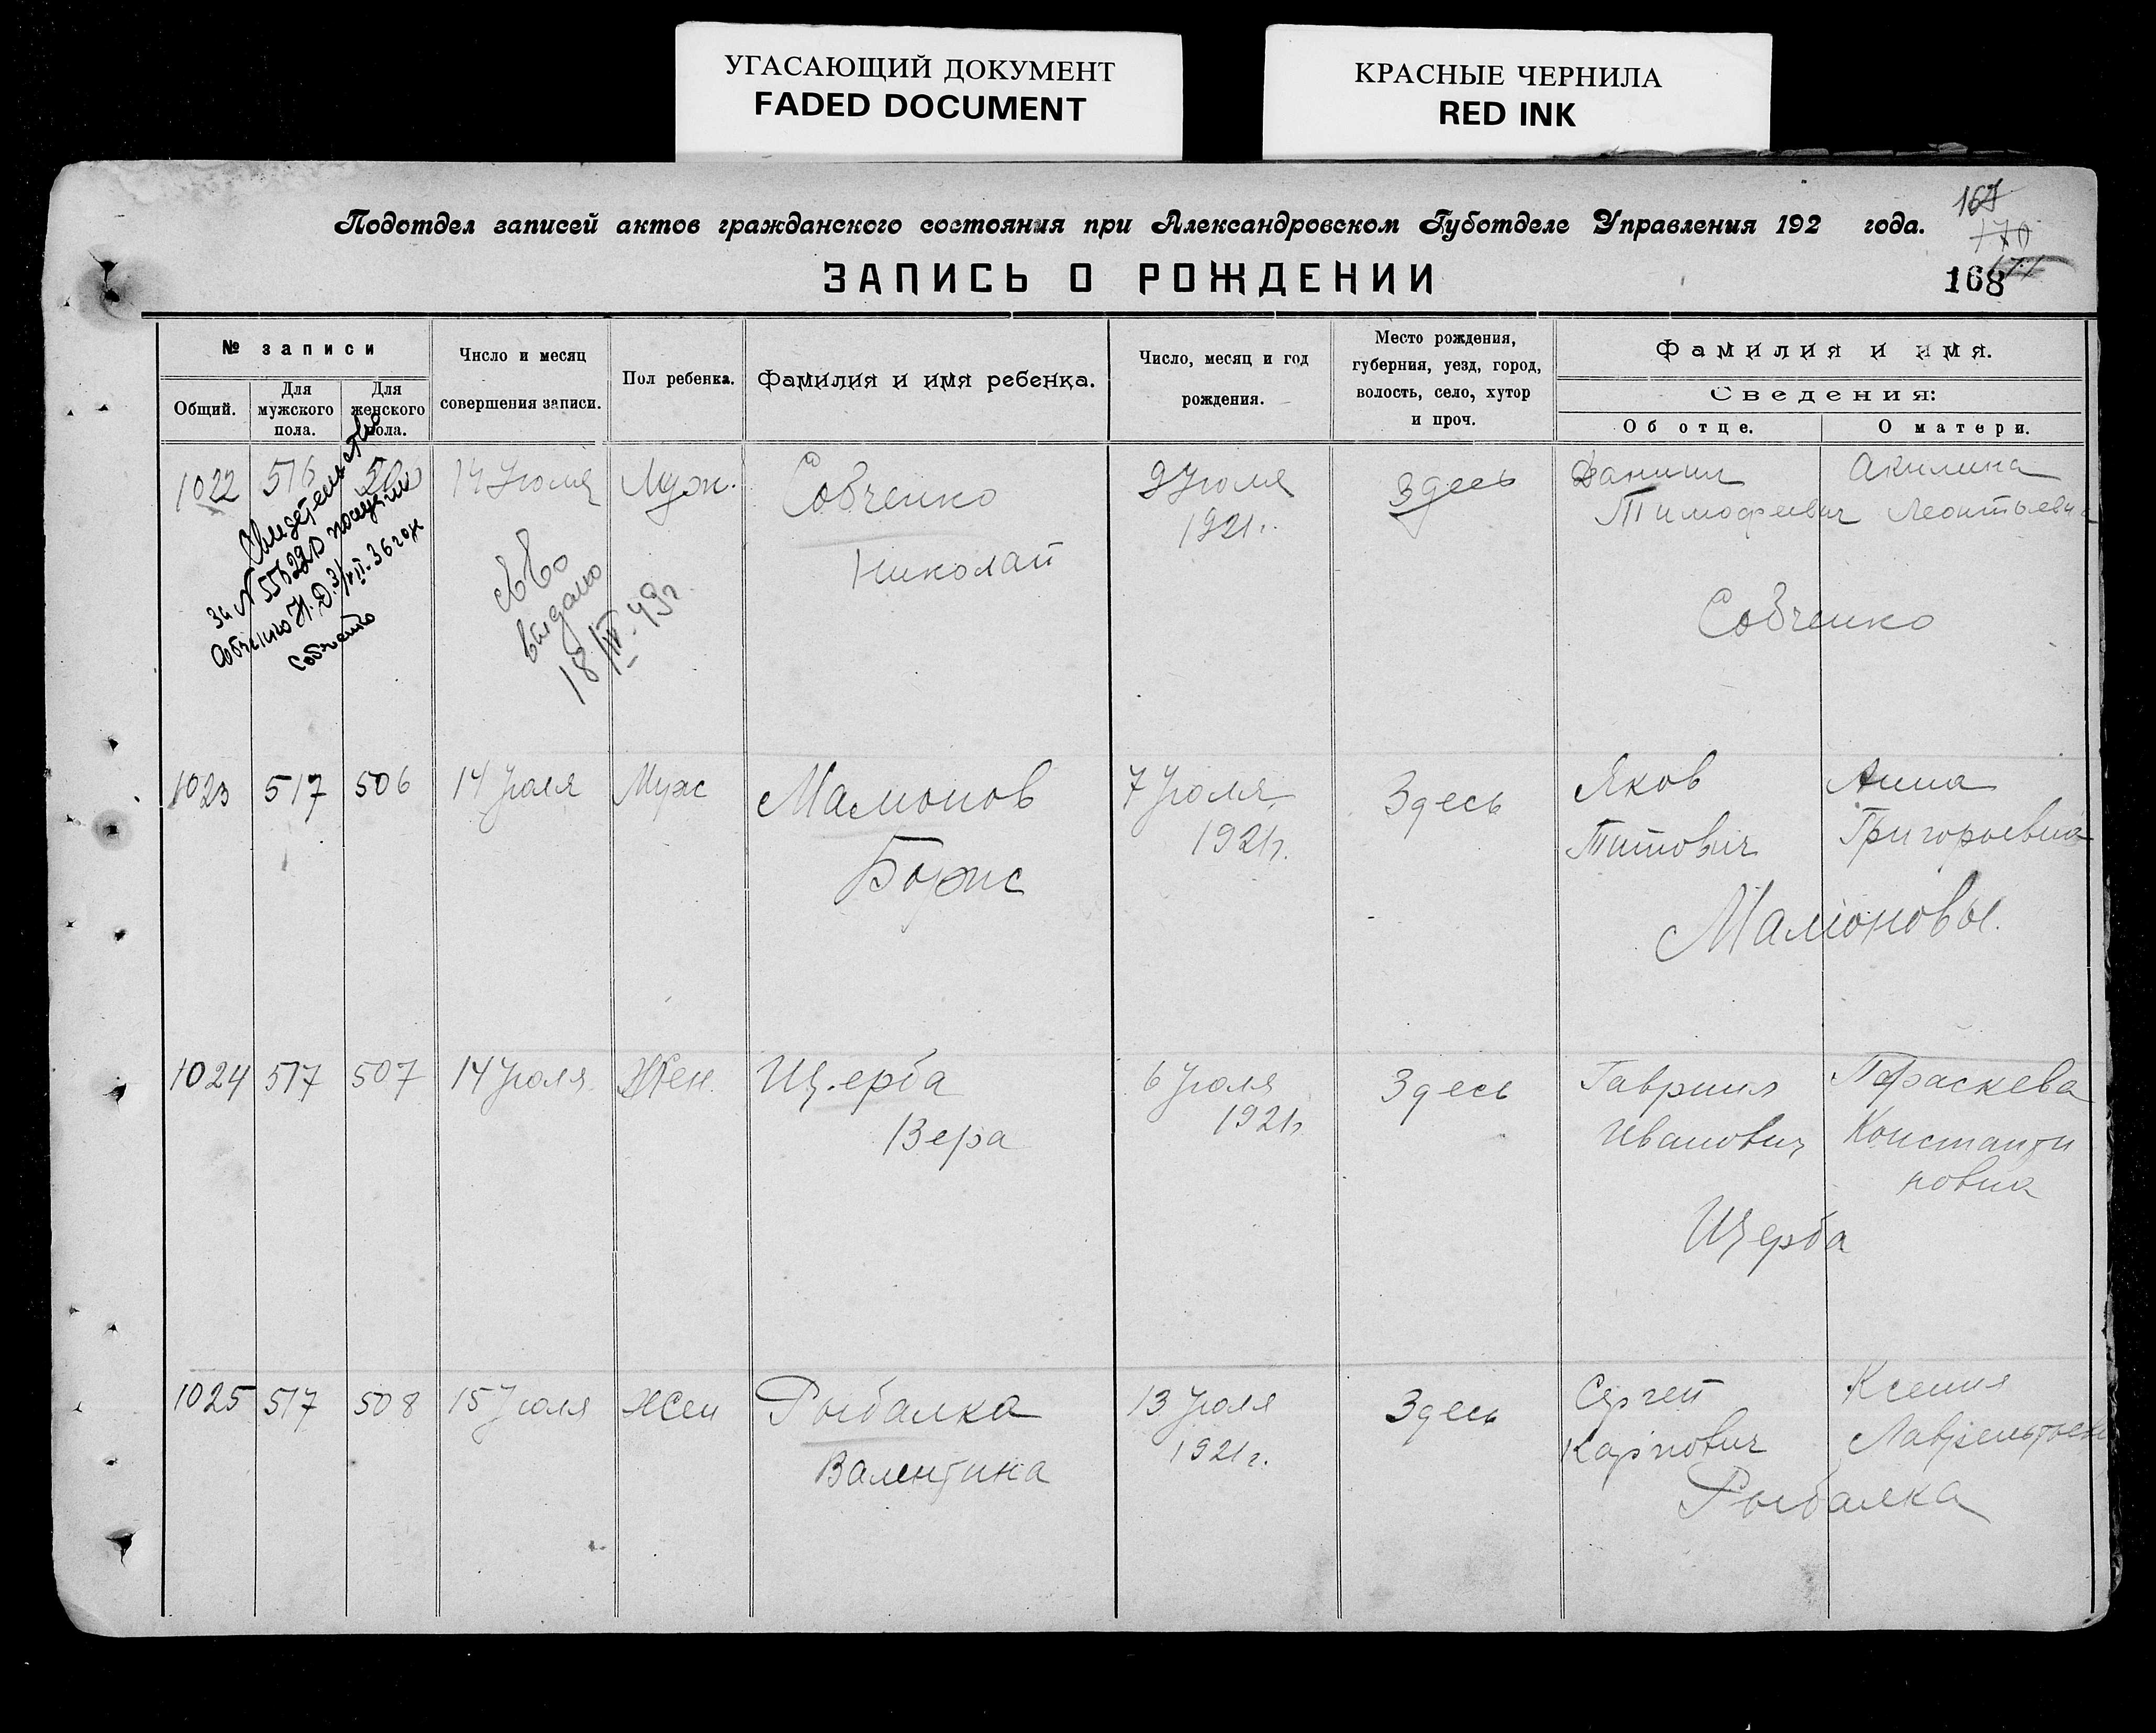 УГАСАЮЩИЙ ДОКУМЕНТ
FADED DOCUMENT
КРАСНЫЕ ЧЕРНИЛА
RED INK
Подотдел записей актов гражданского состояния при Александровском Губотделе Управления 192 года.
170
ЗАПИСЬ О РОЖДЕНИИ
168
№ записи
Общий.
Для мужского пола.
Для женского пола.
Число и месяц совершения записи.
Пол ребенка.
Фамилия и имя ребенка.
Число, месяц и год рождения.
Место рождения, губерния, уезд, город, волость, село, хутор и проч.
Фамилия и имя.
Сведения:
Об отце.
О матери.
1022 516 14 Июля Муж. Совченко 9 Июля Здесь Даниил Акилина
1921г. Тимофеевич Леонтьевна
Николай
Совченко
Свидетельство
за №
Совченко Н. Д. 36 года
Совченко
Св-во
выдано
18/IV-49г
1023 517 506 14 Июля Муж Мамонов 7 Июля Здесь Яков Анна
1921г. Титович Григорьевна
Борис
Мамоновы.
1024 517 507 14 Июля Жен. Щерба 6 Июля Здесь Гавриил Параскева
Вера 1921г Иванович Константи
новна
Щерба
1025 517 508 15 Июля Жен Рыбалка 13 Июля Здесь Сергей Ксения
Валентина 1921г. Карпович
Рыбалка